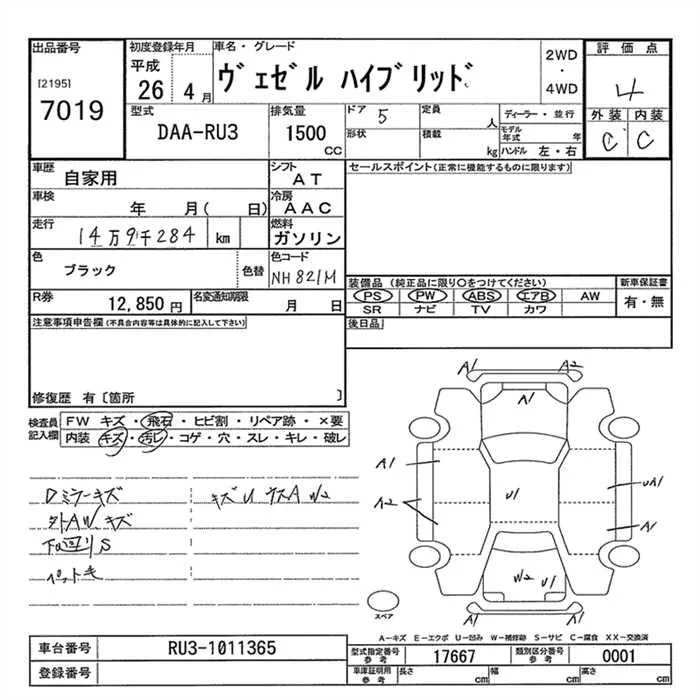 出品番号 初度登録年月 車名・グレード 2WD・4WD 評価点
[2195] 7019
平成 26 4月
ヴェゼル ハイブリッド
4
型式 DAA-RU3
排気量 1500 CC
ドア 5 定員 人
形状 積載 kg
ディーラー・並行
モデル年式 年
ハンドル 左・右
外装 内装
C C
車歴 自家用
シフト AT
セールスポイント(正常に機能するものに限ります)
車検 年 月( 日)
冷房 AAC
走行 14万9千284 km
燃料 ガソリン
色 ブラック 色替
色コード NH821M
装備品 (純正品に限り○をつけてください)
新車保証書
PS PW ABS エアB AW
有・無
SR ナビ TV カワ
R券 12,850円
名変通知期限 月 日
後日品
注意事項申告欄(不具合内容等は具体的に記入して下さい)
修復歴 有〔箇所 〕
検査員記入欄
FW キズ・飛石・ヒビ割・リペア跡・×要
内装 キズ・汚レ・コゲ・穴・スレ・キレ・破レ
Dミラーキズ
キズU キズA W2
外AWキズ
下回りS
ペット毛
A1 A2
A1
A1 U1 UA1
A2 A1
W2 U1
A1 A1
スペア
A-キズ E-エクボ U-凹み W-補修跡 S-サビ C-腐食 XX-交換済
車台番号 RU3-1011365
型式指定番号 参考 17667
類別区分番号 参考 0001
登録番号
車庫証明用 参考 長さ cm 幅 cm 高さ cm